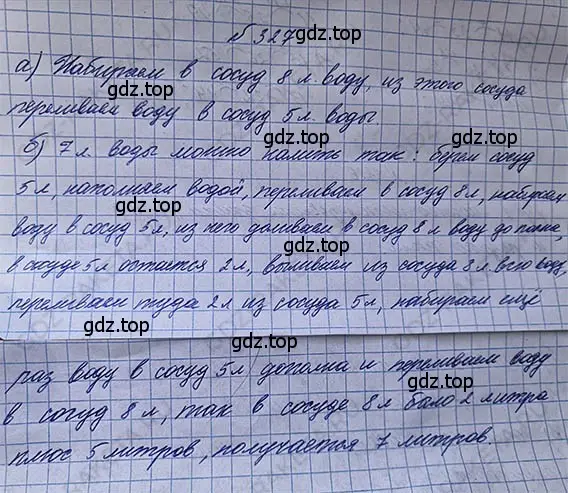 № 327
gdz.top
а) Набираем в сосуд 8 л воду, из этого сосуда
gdz.top
переливаем воду в сосуд 5 л воды
gdz.top
б) 7 л воды можно налить так: берем сосуд
gdz.top
5 л, наполняем водой, переливаем в сосуд 8 л, набираем
gdz.top
воду в сосуд 5 л, из него доливаем в сосуд 8 л воду до полна,
gdz.top
в сосуде 5 л остается 2 л, выливаем из сосуда 8 л всю воду,
gdz.top
переливаем туда 2 л из сосуда 5 л, набираем ещё
gdz.top
раз воду в сосуд 5 л дополна и переливаем воду
gdz.top
в сосуд 8 л, так в сосуде 8 л было 2 литра
gdz.top
плюс 5 литров, получается 7 литров.
gdz.top